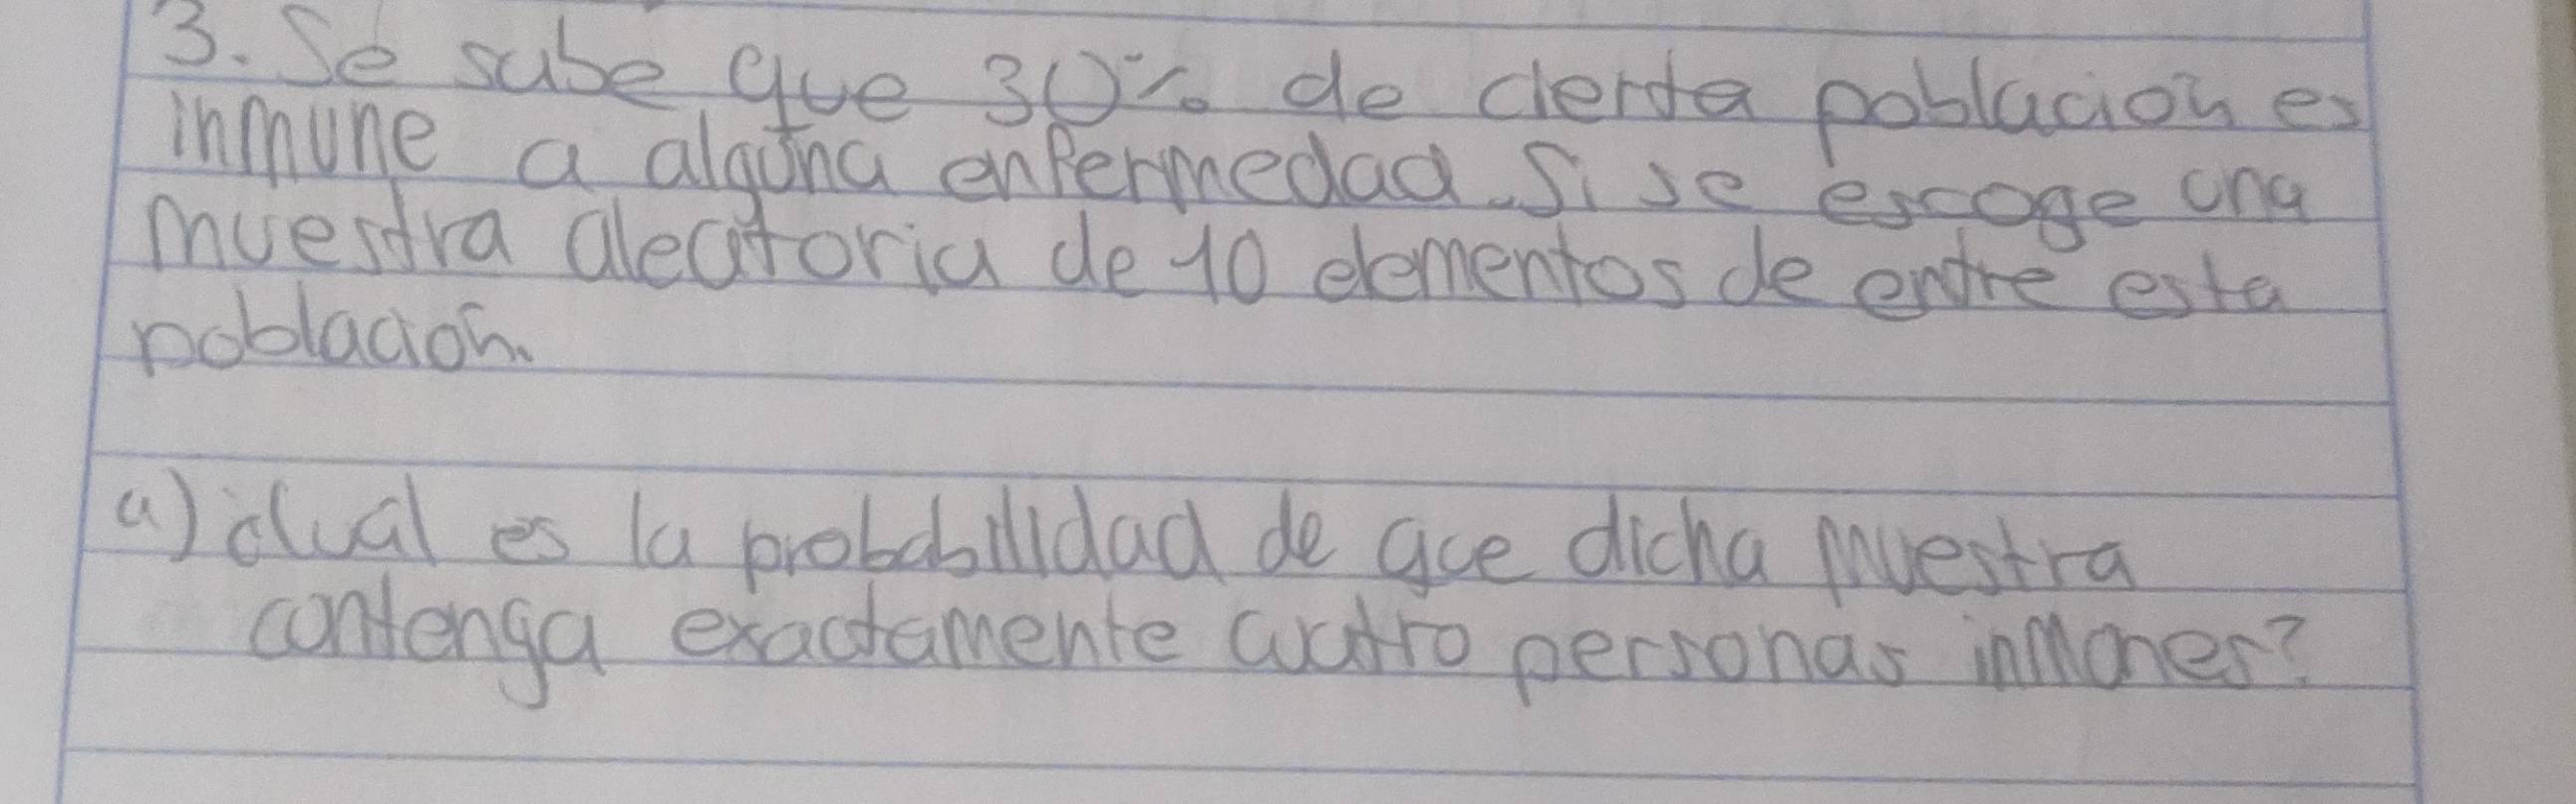 3. Se sabe que 30% de cierta población es
inmune a alguna enfermedad. Si se escoge una
muestra aleatoria de 10 elementos de entre esta
población.
a) ¿Cual es la probabilidad de que dicha muestra
contenga exactamente cuatro personas inmunes?